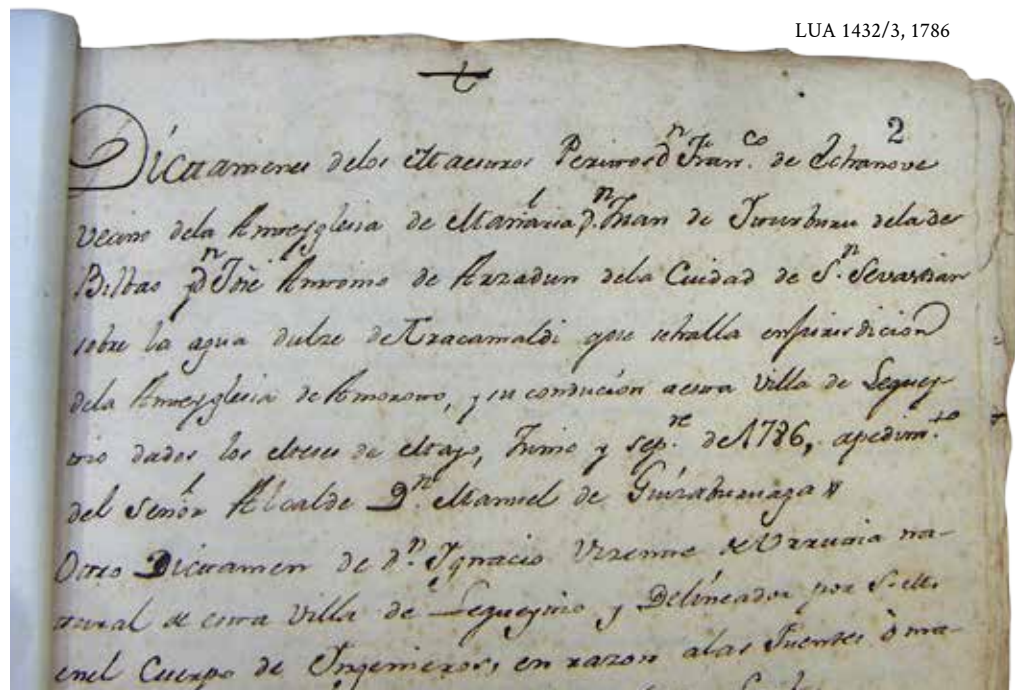 LUA 1432/3, 1786
2
Dictamenes delos Maestros Peritos dn Franco. de Echanove
vecino dela Anteyglesia de Mañaria dn. Juan de Yturburu dela de
Bilbao y dn José Antonio de Arzadun dela Ciudad de Sn. Sevastian
sobre la agua dulze de Tracamaldi que sehalla ensujurisdicion
dela Anteyglesia de Amoroto, y su conducion aesta Villa de Lequey-
tio dados los Meses de Mayo, Junio y Sepre. de 1786, apedimto.
del Señor Alcalde Dn. Manuel de Guizaburuaga
Otro Dictamen de dn. Ygnacio Vizente de Urrutia na-
tural de esta Villa de Lequeytio y Delineador por S.M.
enel Cuerpo de Yngenieros, en razon alas Fuentes ò ma-